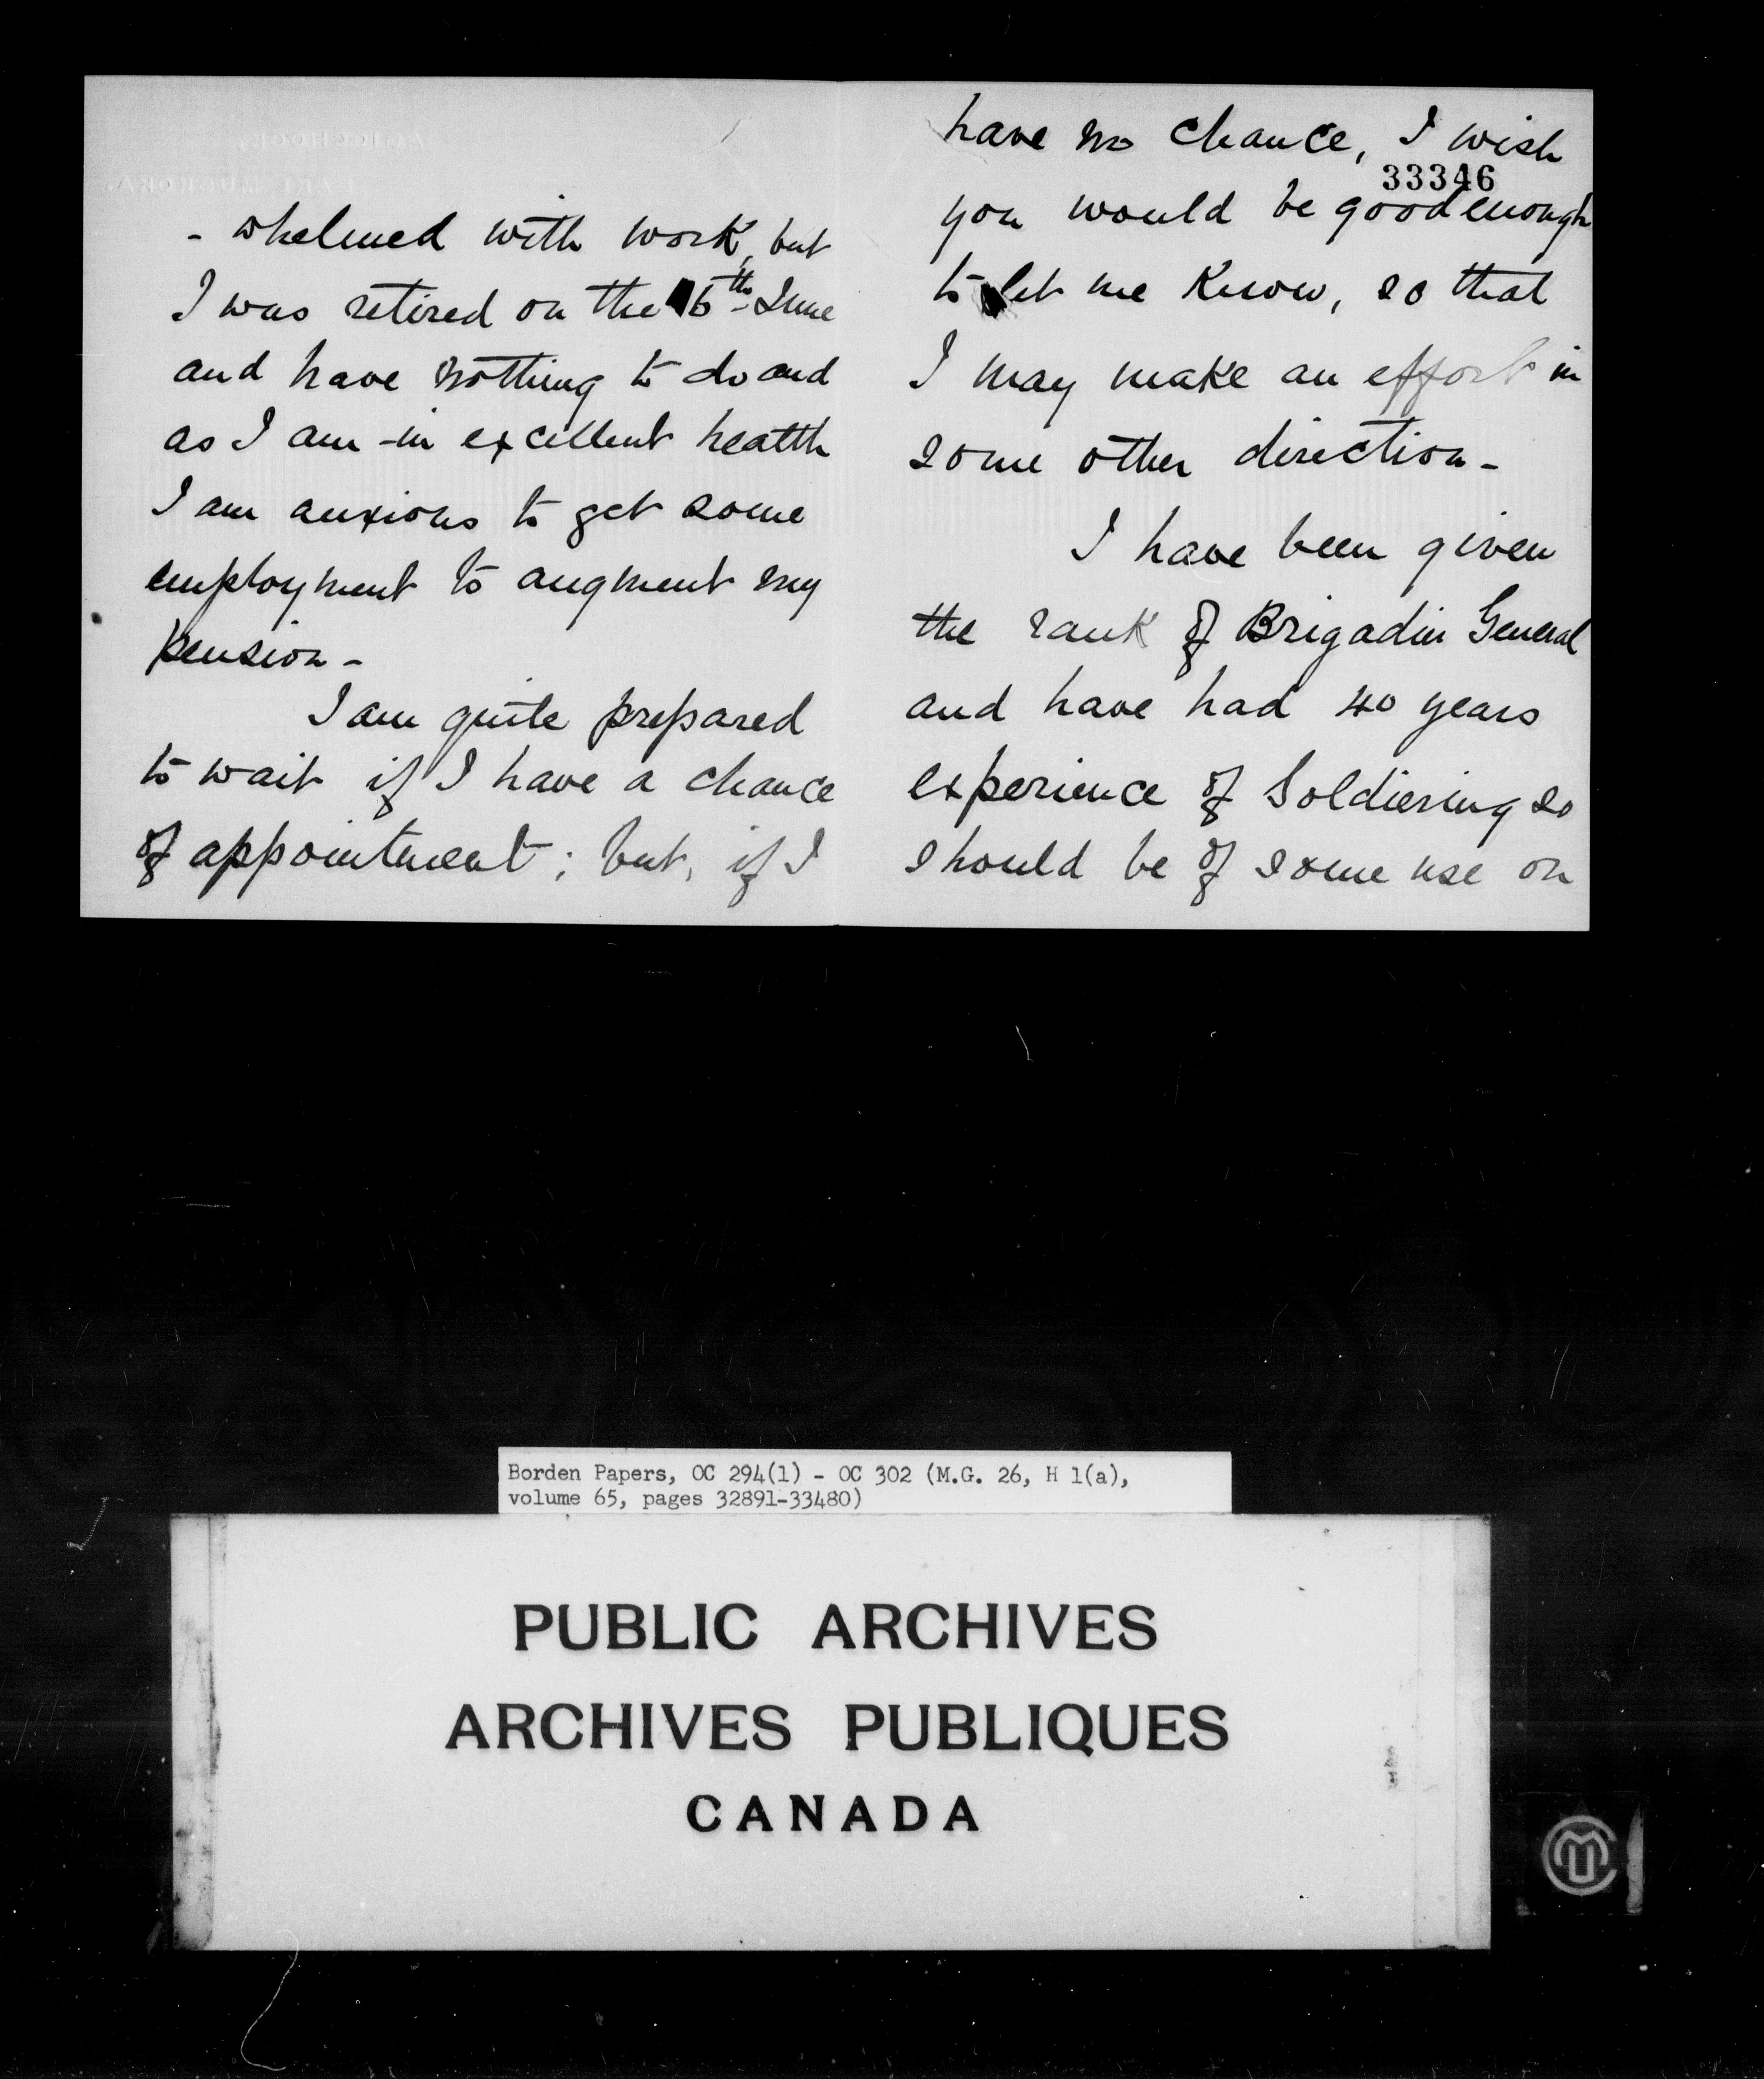 - whelmed with work, but
I was retired on the 16th June
and have nothing to do and
as I am in excellent health
I am anxious to get some
employment to augment my
pension -
I am quite prepared
to wait if I have a chance
of appointment; but, if I
have no chance, I wish
33346
you would be good enough
to let me know, so that
I may make an effort in
some other direction -
I have been given
the rank of Brigadier General
and have had 40 years
experience of Soldiering so
should be of some use on
Borden Papers, OC 294(1) - OC 302 (M.G. 26, H 1(a),
volume 65, pages 32891-33480)
PUBLIC ARCHIVES
ARCHIVES PUBLIQUES
CANADA